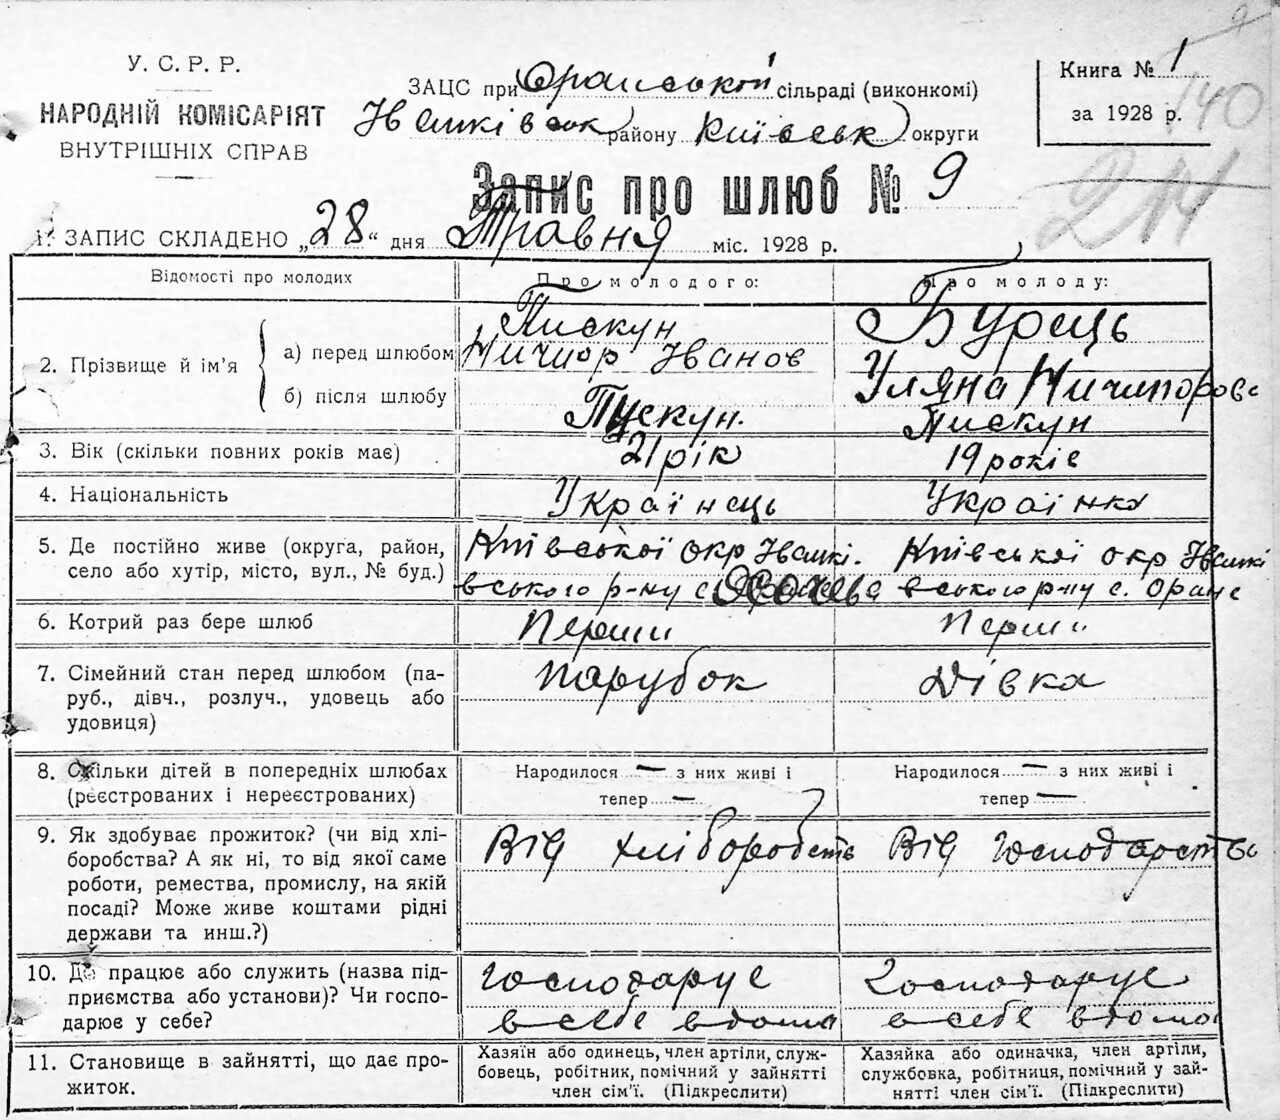 У. С. Р. Р.
НАРОДНІЙ КОМІСАРІЯТ
ВНУТРІШНІХ СПРАВ
ЗАЦС при Оранській сільраді (виконкомі)
Іванківськ району Київськ округи
Книга № 1
за 1928 р.
140
214
Запис про шлюб № 9
1. ЗАПИС СКЛАДЕНО „28“ дня Травня міс. 1928 р.
Відомості про молодих
Про молодого:
Про молоду:
2. Прізвище й ім’я
а) перед шлюбом
Пискун
Ничипор Іванов
Бурець
Уляна Ничипорова
б) після шлюбу
Пускун.
Пискун
3. Вік (скільки повних років має)
21 рік
19 років
4. Національність
Українець
Українка
5. Де постійно живе (округа, район,
село або хутір, місто, вул., № буд.)
Київської окр Іванкі.
вського р-ну с.
Київської окр Іванкі
вського р-ну с. Оране
6. Котрий раз бере шлюб
Перши
Перши
7. Сімейний стан перед шлюбом (па-
руб., дівч., розлуч., удовець або
удовиця)
Парубок
Дівка
8. Скільки дітей в попередніх шлюбах
(реєстрованих і нереєстрованих)
Народилося — з них живі і
тепер —
Народилося — з них живі і
тепер —
9. Як здобуває прожиток? (чи від хлі-
боробства? А як ні, то від якої саме
роботи, ремества, промислу, на якій
посаді? Може живе коштами рідні
держави та инш.?)
Від хліборобств
Від господарство
10. Де працює або служить (назва під-
приємства або установи)? Чи госпо-
дарює у себе?
Господарує
в себе вдома
Господарує
в себе вдома
11. Становище в зайнятті, що дає про-
житок.
Хазяїн або одинець, член артіли, служ-
бовець, робітник, помічний у зайнятті
член сім’ї. (Підкреслити)
Хазяйка або одиначка, член артіли,
службовка, робітниця, помічний у зай-
нятті член сім’ї. (Підкреслити)